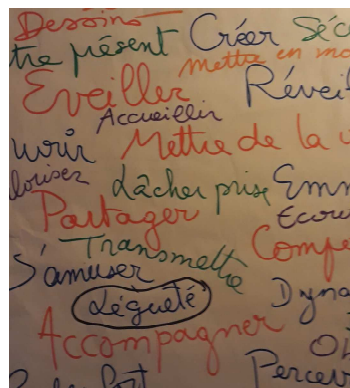 Dessins
tre présent Créer Séc
mettre en mo
Eveiller Réveil
Accueillir
uvrir Mettre de la v
lorisez
Lâcher prise Emm
Partager Ecou
Transmettre Compe
S'amuser
Légueté Dyna
Accompagner
Percev